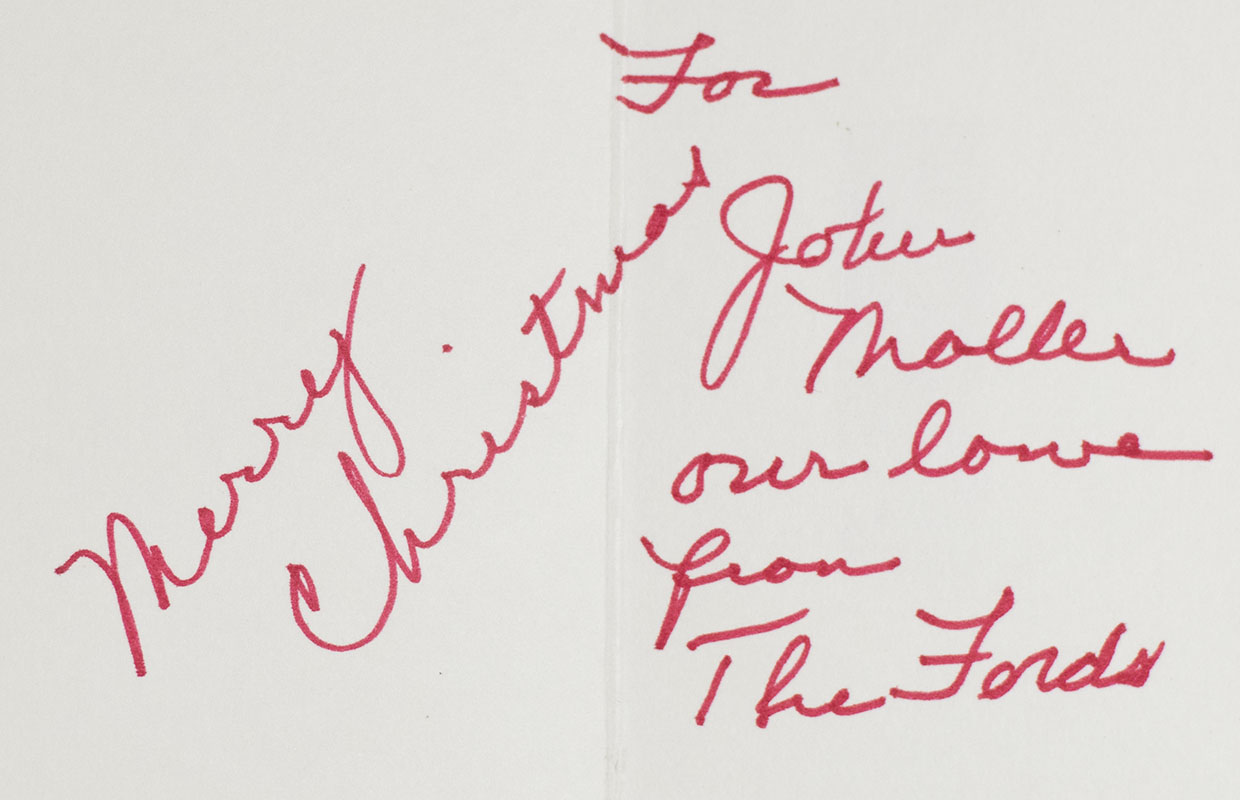 Merry
Christmas
For
John
Moller
our love
from
The Fords